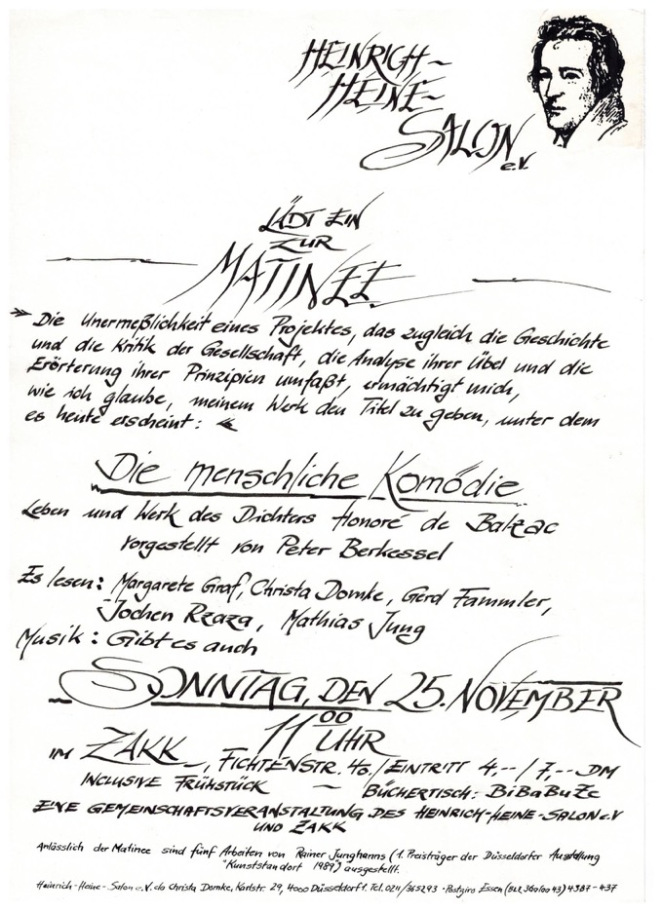 HEINRICH-
HEINE-
SALON
e.V.
LÄDT EIN
ZUR
MATINEE
» Die Unermeßlichkeit eines Projektes, das zugleich die Geschichte
und die Kritik der Gesellschaft, die Analyse ihrer Übel und die
Erörterung ihrer Prinzipien umfaßt, ermächtigt mich,
wie ich glaube, meinem Werk den Titel zu geben, unter dem
es heute erscheint: «
Die menschliche Komödie
Leben und Werk des Dichters Honoré de Balzac
vorgestellt von Peter Berkessel
Es lesen: Margarete Graf, Christa Domke, Gerd Fammler,
Jochen Rzaza, Mathias Jung
Musik: Gibt es auch
SONNTAG, DEN 25. NOVEMBER
11 00 UHR
IM ZAKK, FICHTENSTR. 40 / EINTRITT 4,-- / 7,-- DM
INCLUSIVE FRÜHSTÜCK – BÜCHERTISCH: BiBaBuZe
EINE GEMEINSCHAFTSVERANSTALTUNG DES HEINRICH-HEINE-SALON e.V
UND ZAKK
Anlässlich der Matinee sind fünf Arbeiten von Rainer Junghanns (1. Preisträger der Düsseldorfer Ausstellung
"Kunststandort 1989") ausgestellt.
Heinrich-Heine-Salon e.V. c/o Christa Domke, Karlstr. 29, 4000 Düsseldorf 1. Tel. 0211/365293 · Postgiro Essen (BLZ 360 100 43) 4387-437